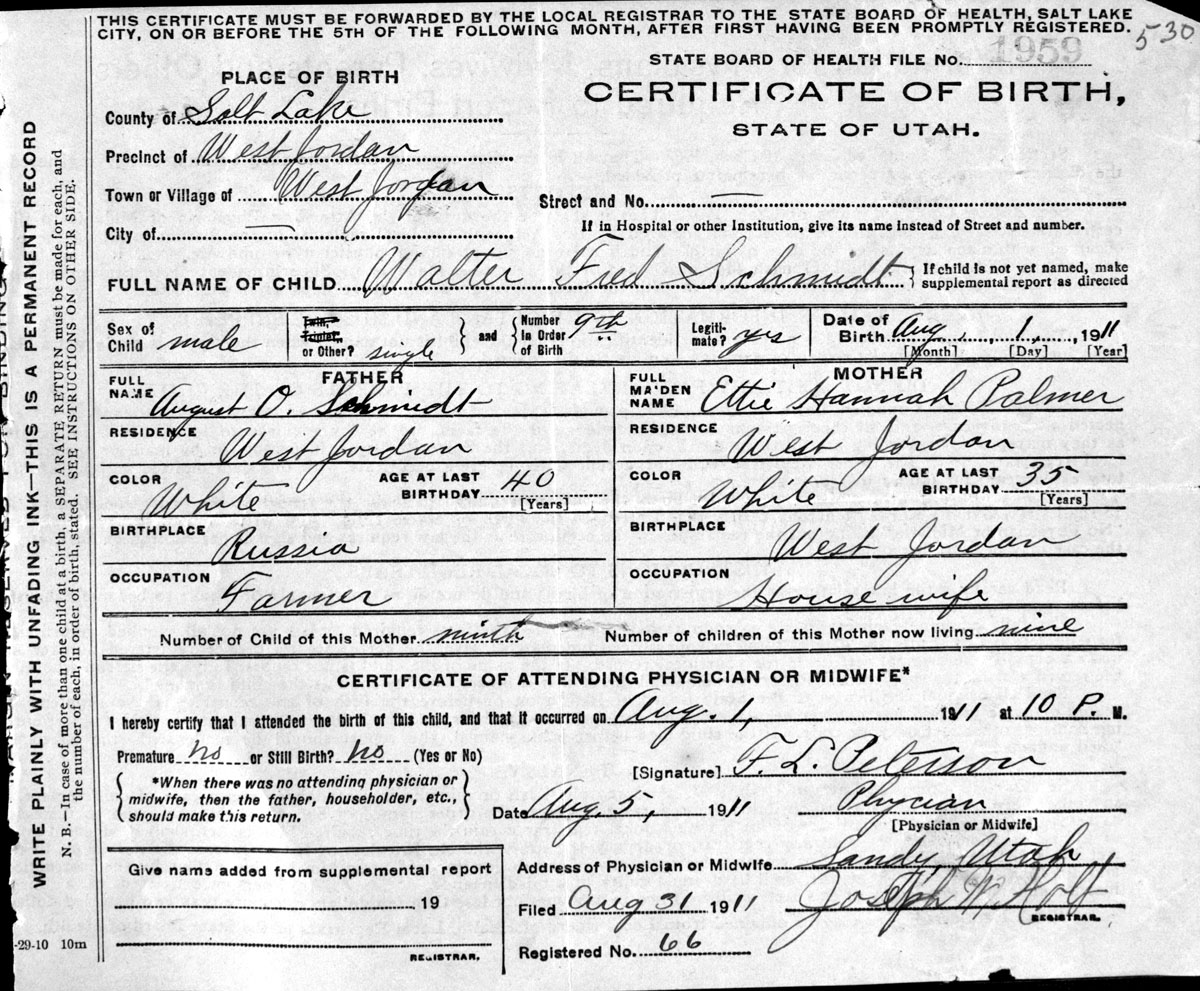 THIS CERTIFICATE MUST BE FORWARDED BY THE LOCAL REGISTRAR TO THE STATE BOARD OF HEALTH, SALT LAKE
CITY, ON OR BEFORE THE 5TH OF THE FOLLOWING MONTH, AFTER FIRST HAVING BEEN PROMPTLY REGISTERED.
530
STATE BOARD OF HEALTH FILE No. 1959
PLACE OF BIRTH
CERTIFICATE OF BIRTH,
STATE OF UTAH.
County of Salt Lake
Precinct of West Jordan
Town or Village of West Jordan
Street and No. —
City of —
If in Hospital or other Institution, give its name instead of Street and number.
FULL NAME OF CHILD Walter Fred Schmidt { If child is not yet named, make
supplemental report as directed
Sex of Child male
Twin, Triplet, or Other? single } and { Number in Order of Birth 9th
Legitimate? yes
Date of Birth Aug. 1, 1911
[Month] [Day] [Year]
FATHER
FULL NAME August O. Schmidt
RESIDENCE West Jordan
COLOR White AGE AT LAST BIRTHDAY 40 [Years]
BIRTHPLACE Russia
OCCUPATION Farmer
MOTHER
FULL MAIDEN NAME Ettie Hannah Palmer
RESIDENCE West Jordan
COLOR White AGE AT LAST BIRTHDAY 35 [Years]
BIRTHPLACE West Jordan
OCCUPATION House wife
Number of Child of this Mother ninth Number of children of this Mother now living nine
CERTIFICATE OF ATTENDING PHYSICIAN OR MIDWIFE*
I hereby certify that I attended the birth of this child, and that it occurred on Aug. 1, 1911 at 10 P. M.
Premature no or Still Birth? no (Yes or No)
*When there was no attending physician or
midwife, then the father, householder, etc.,
should make this return.
[Signature] F. L. Peterson
Date Aug. 5, 1911 Phycian
[Physician or Midwife]
Address of Physician or Midwife Sandy, Utah
Filed Aug 31 1911 Joseph W. Holt
REGISTRAR.
Registered No. 66
Give name added from supplemental report
19
REGISTRAR.
-29-10 10m
WRITE PLAINLY WITH UNFADING INK—THIS IS A PERMANENT RECORD
N. B.—In case of more than one child at a birth, a SEPARATE RETURN must be made for each, and
the number of each, in order of birth, stated. SEE INSTRUCTIONS ON OTHER SIDE.